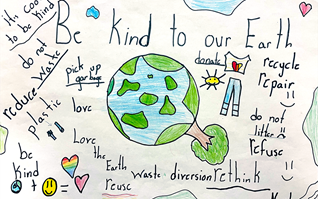 its cool
to be kind
Be Kind to our Earth
do not
waste
reduce
plastic
pick up
garbage
love
donate
recycle
repair
do not
litter
refuse
be
kind
+ =
Love
the
Earth
reuse
waste diversion
rethink